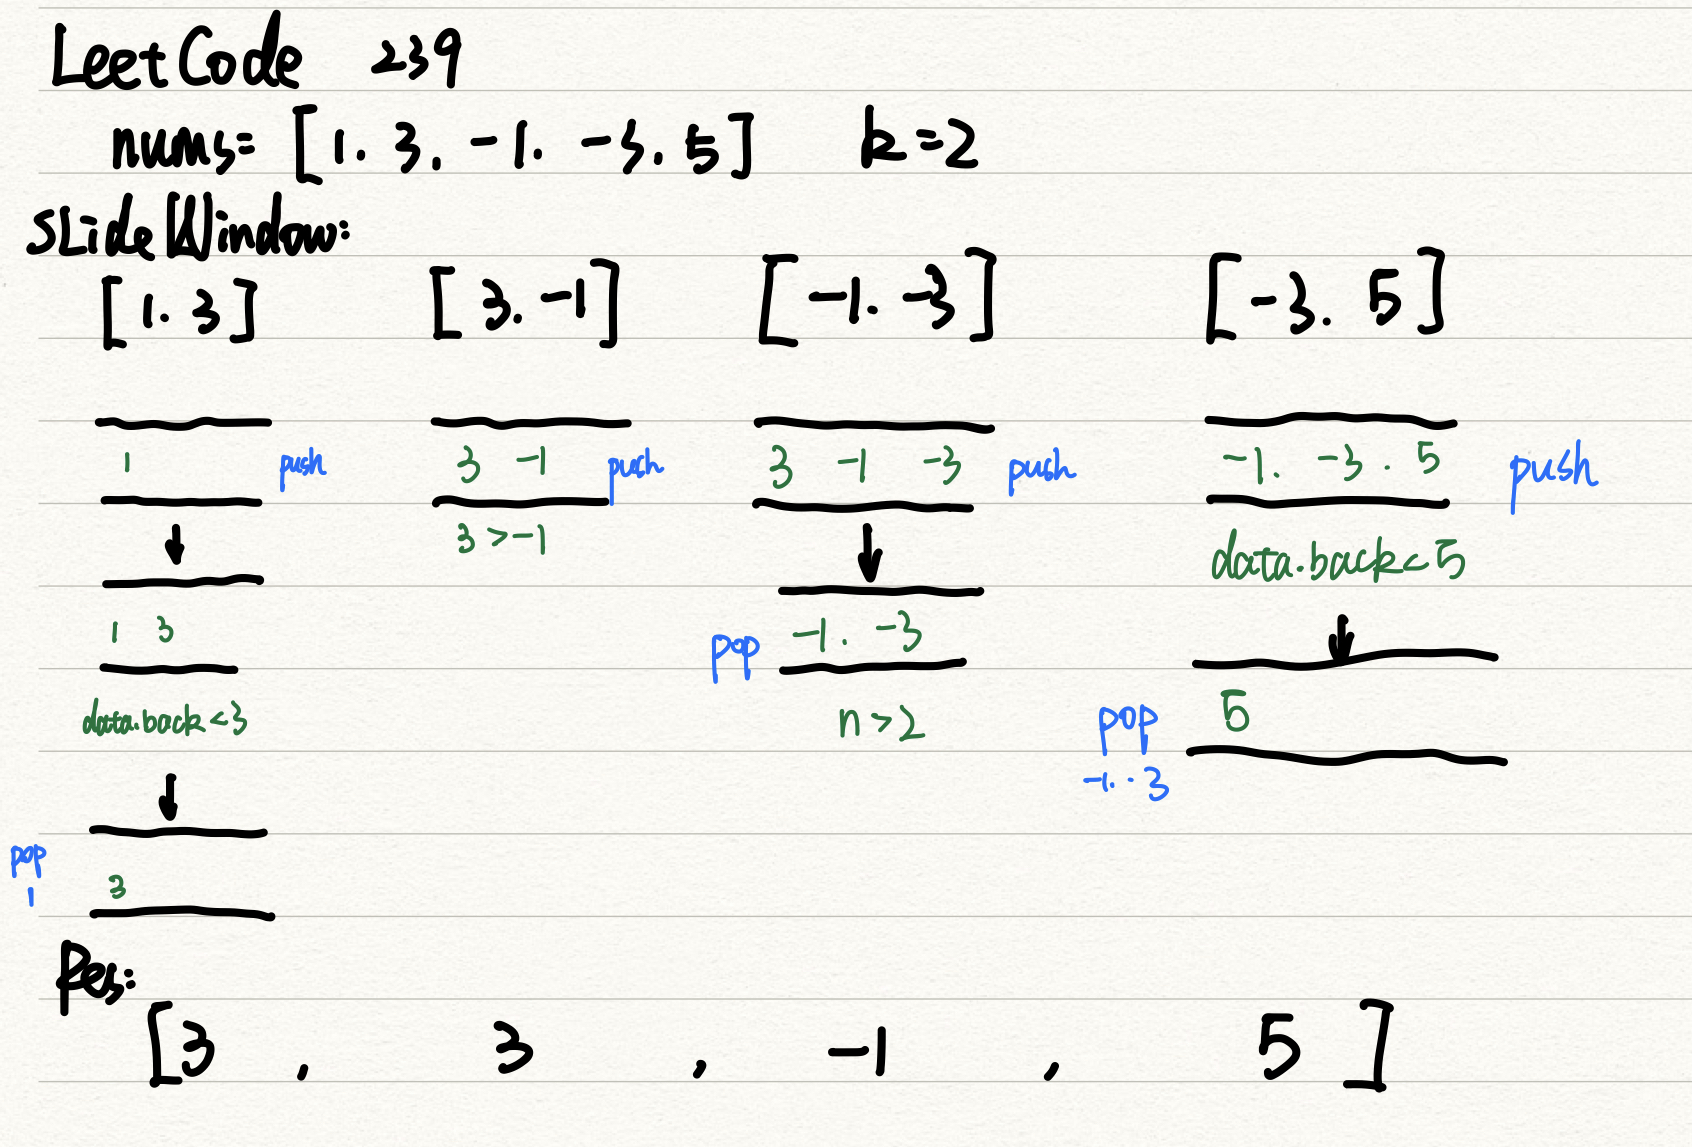 LeetCode 239
nums= [1. 3. -1. -3. 5] k=2
SLideWindow:
[1. 3] [3. -1] [-1. -3] [-3. 5]
1 push 3 -1 push 3 -1 -3 push -1. -3. 5 push
3 > -1
data.back<5
1 3
pop -1. -3
data.back<3
n>2
pop 5
-1. -3
pop 3
1
Res:
[3 , 3 , -1 , 5]